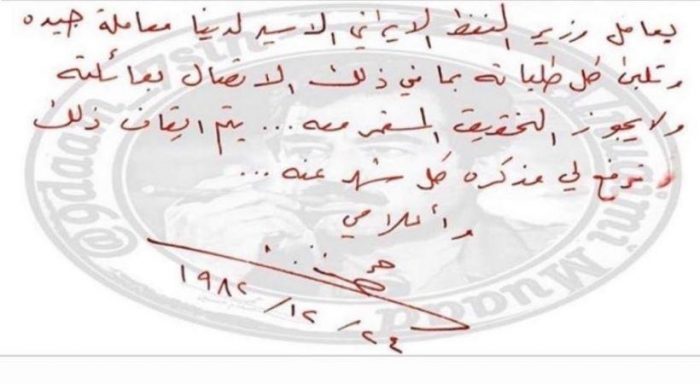 يعامل وزير النفط الايراني الاسير لدينا معاملة جيده
وتلبى كل طلباته بما في ذلك الاتصال بعائلته
ولايجوز التحقيق المستمر معه... يتم ايقاف ذلك
وترفع لي مذكره كل شهر عنه...
وأعلامي
١٩٨٢/١٢/٢٤
@gdaan
Muaad